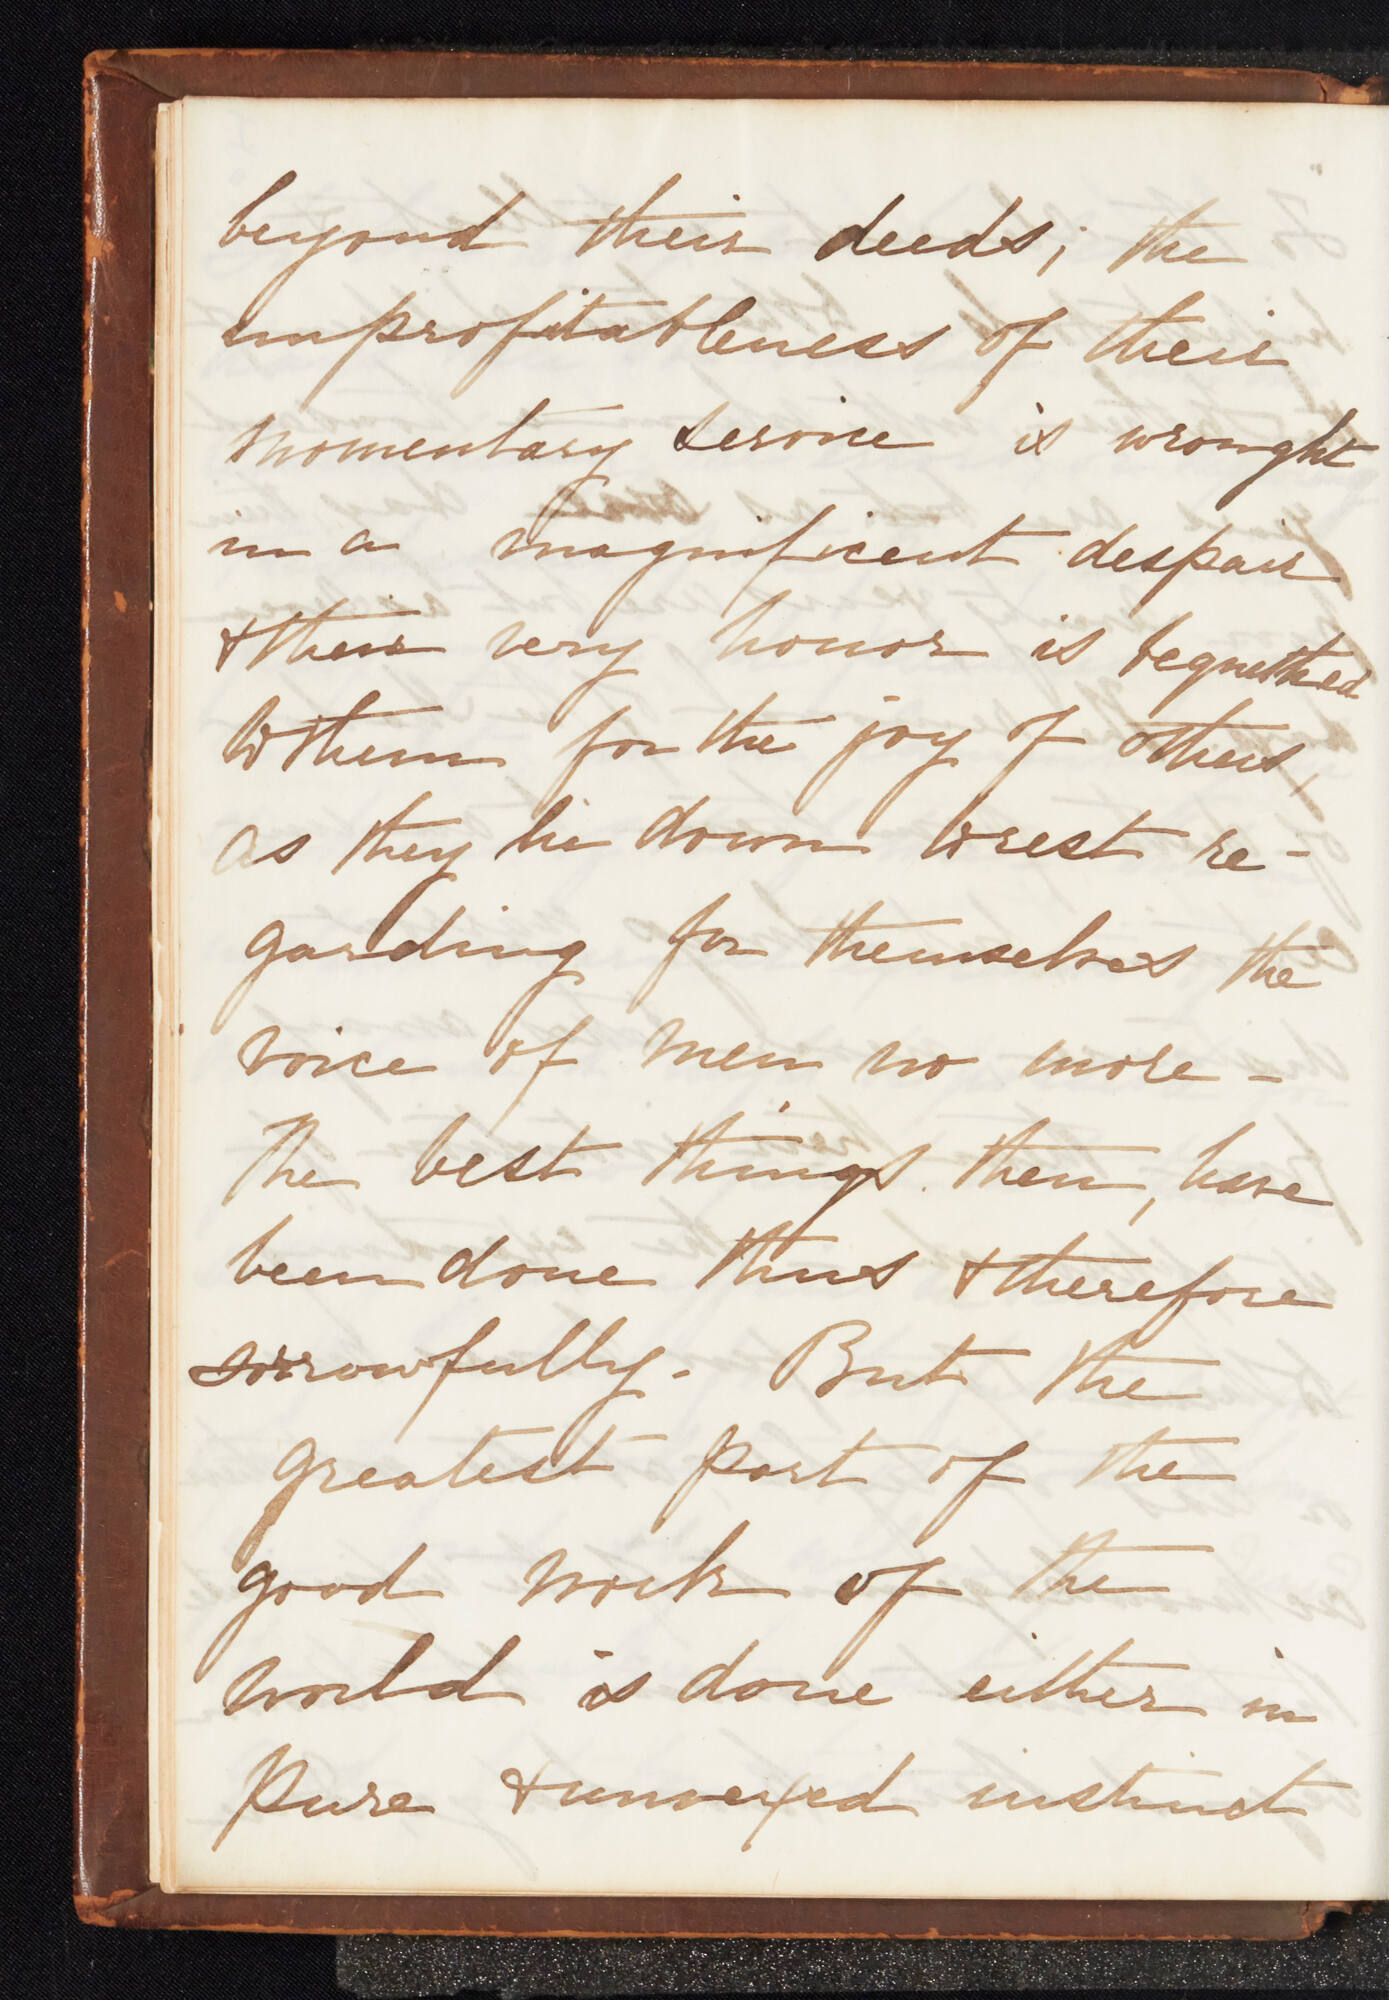 beyond their deeds; the
unprofitableness of their
momentary service is wrought
in a magnificent despair
& their very honor is bequethed
to them for the joy of others,
as they lie down to rest re-
garding for themselves the
voice of men no more -
The best things then, have
been done thus & therefore
sorrowfully. But the
greatest part of the
good work of the
world is done either in
pure & unvexed instinct